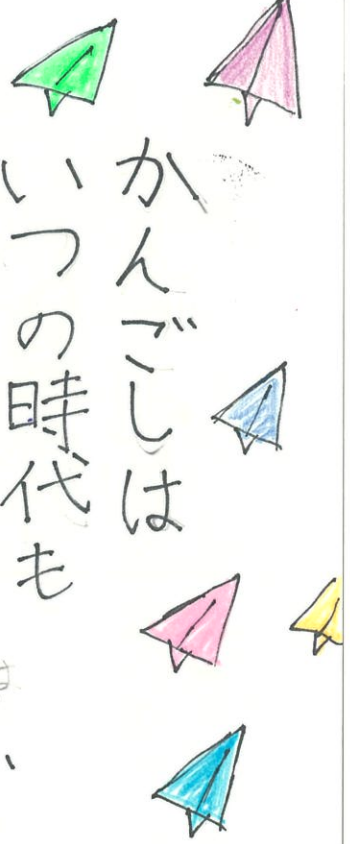 かんごしは
いつの時代も